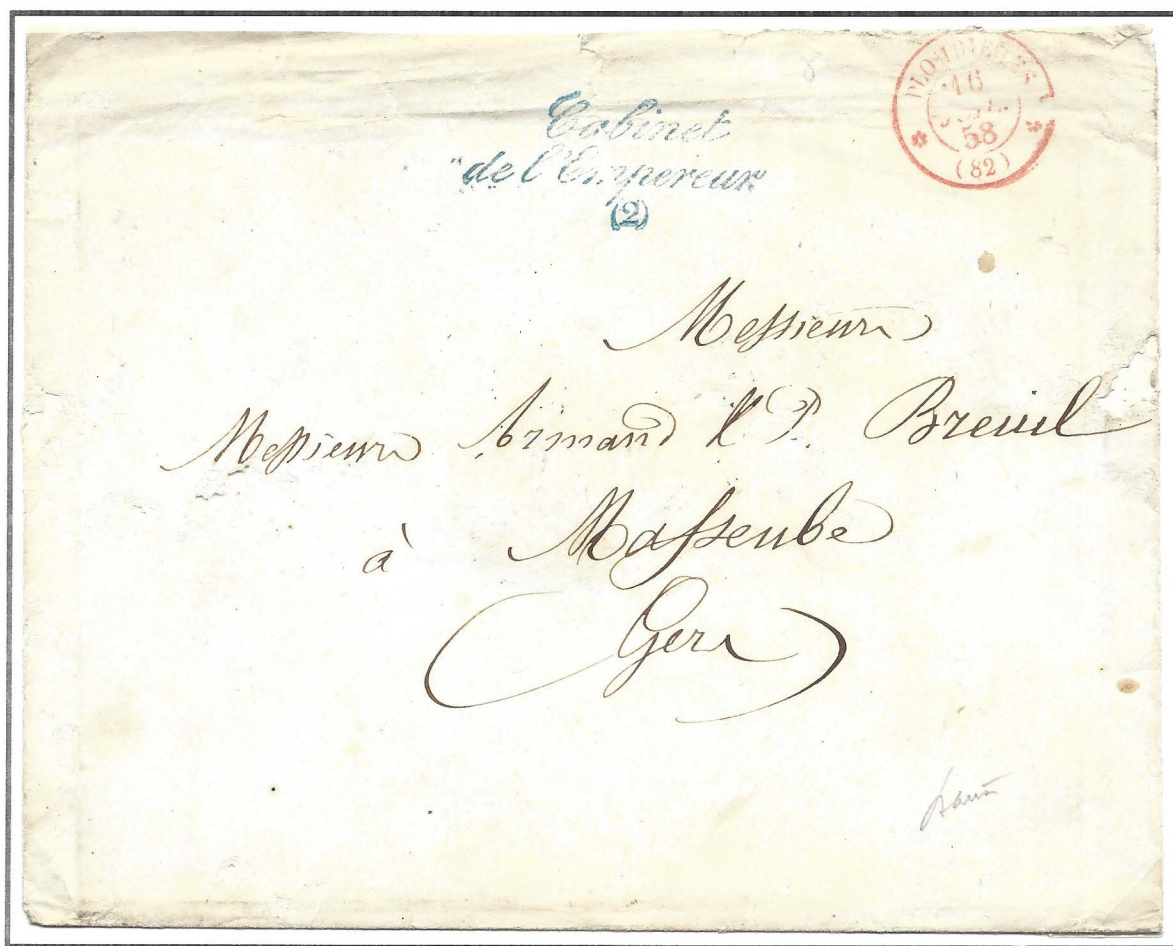 Cabinet
de l'Empereur
(2)
PLOMBIERES
16
JUIL.
58
(82)
Messieurs
Messieurs Armand & P. Breuil
à Masseube
Gers